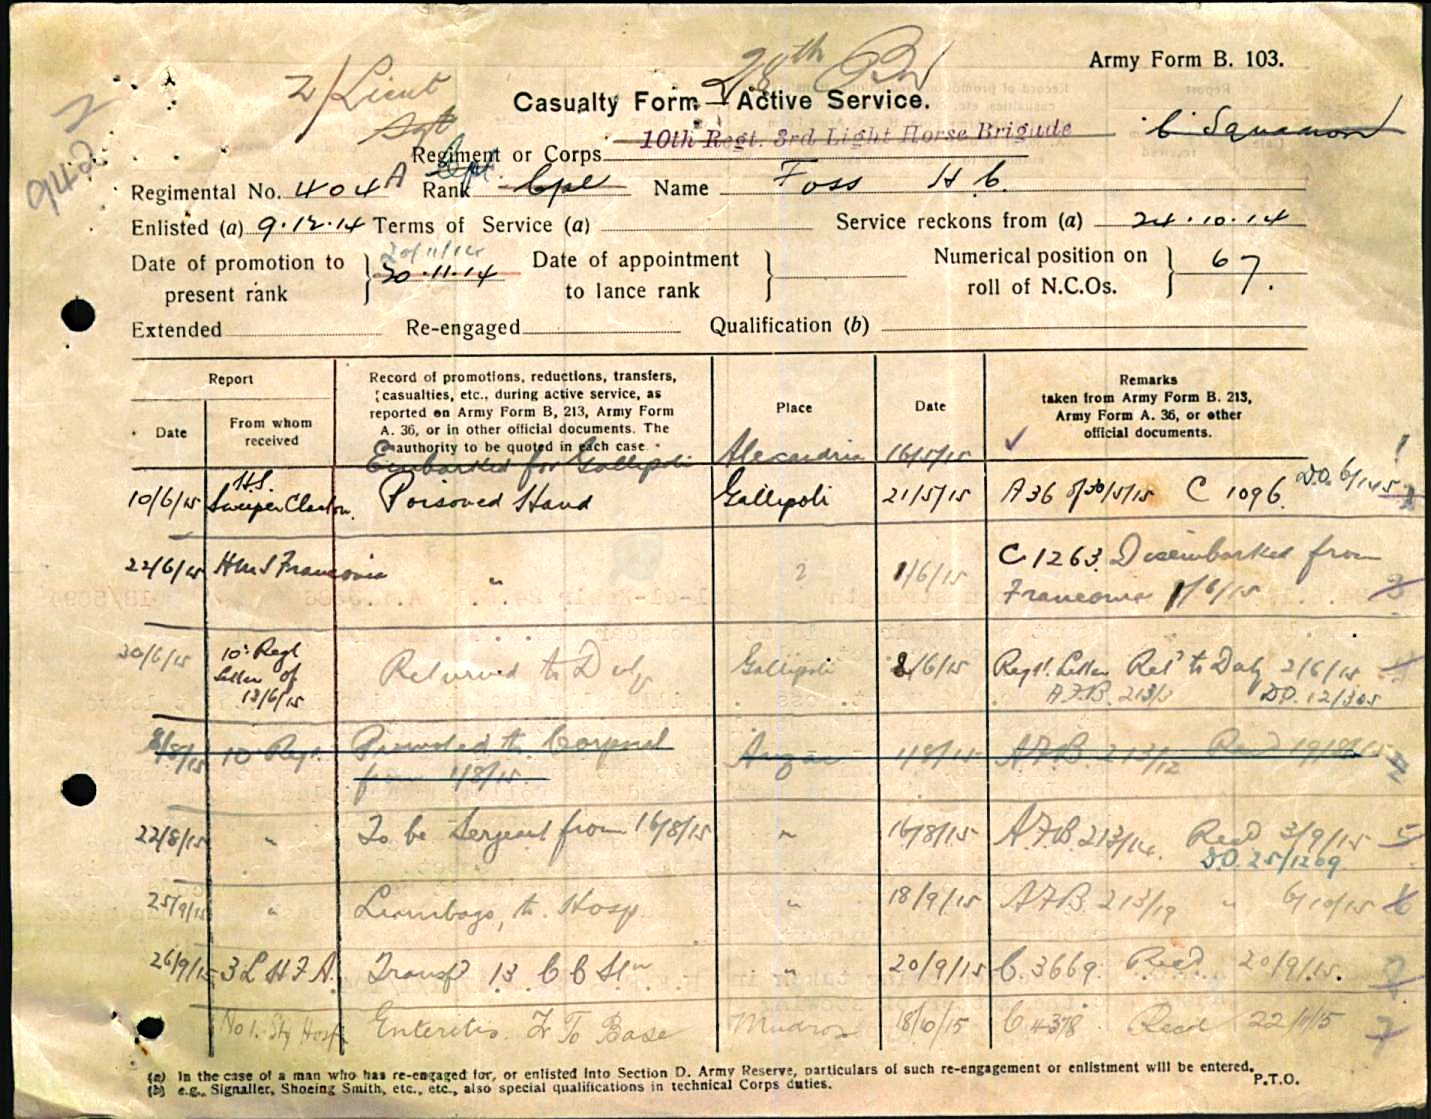 2/Lieut
28th Bn
Army Form B. 103.
942
Casualty Form — Active Service.
Sgt
10th Regt. 3rd Light Horse Brigade
C Squadron
Regiment or Corps
Regimental No. 404 A Rank Cpl Name Foss H C.
Enlisted (a) 9.12.14 Terms of Service (a) Service reckons from (a) 24.10.14
20/11/14
Date of promotion to present rank 30.11.14 Date of appointment to lance rank Numerical position on roll of N.C.Os. 67.
Extended Re-engaged Qualification (b)
Report
Date
From whom received
Record of promotions, reductions, transfers, casualties, etc., during active service, as reported on Army Form B, 213, Army Form A. 36, or in other official documents. The authority to be quoted in each case.
Place
Date
Remarks
taken from Army Form B. 213, Army Form A. 36, or other official documents.
Embarked for Gallipoli Alexandria 16/5/15
10/6/15 H.S. Poisoned Hand Gallipoli 21/5/15 A 36 30/5/15 C 1096. D.O. 6/145
22/6/15 HMS Franconia " 1/6/15 C 1263. Disembarked from
Franconia 1/6/15
30/6/15 10 Regt Letter of 13/6/15 Returned to Duty Gallipoli 2/6/15 Regt. Letter Ret to Duty 2/6/15
A.F.B. 213/ D.O. 12/305
/8/15 10 Regt. Promoted to Corporal Anzac 4/8/15 A.F.B. 213/12 Recd 19/8/15
from 4/8/15.
22/8/15 " To be Sergeant from 16/8/15 " 16/8/15 A.F.B. 213/14. Recd 3/9/15 5
D.O. 25/1209
25/9/15 " Lumbago, to Hosp " 18/9/15 A.F.B. 213/19 " 6/10/15 6
26/9/15 3 L H F A. Transf 13 C C Stn " 20/9/15 C. 3669. Recd 20/9/15. 7
No 1. Sty Hosp Enteritis. To Base Mudros 18/10/15 C 4378 Recd 22/11/15 7
(a) In the case of a man who has re-engaged for, or enlisted into Section D. Army Reserve, particulars of such re-engagement or enlistment will be entered.
(b) e.g., Signaller, Shoeing Smith, etc., etc., also special qualifications in technical Corps duties.
P.T.O.